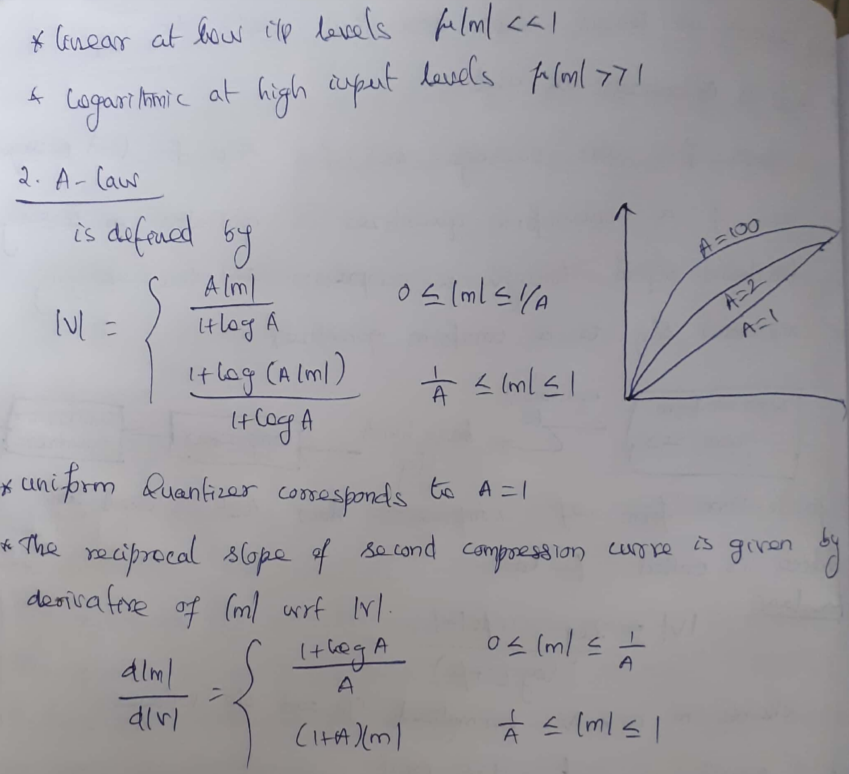 * linear at low i/p levels μ|m| <<1
* Logarithmic at high input levels μ|m| >>1
2. A-law
is defined by
|V| = { A|m| / 1+log A    0 ≤ |m| ≤ 1/A
1+log (A|m|) / 1+log A    1/A ≤ |m| ≤ 1
A=100
A=2
A=1
* uniform Quantizer corresponds to A=1
* The reciprocal slope of second compression curve is given by
derivative of |m| wrt |v|.
d|m| / d|v| = { 1+log A / A    0 ≤ |m| ≤ 1/A
(1+A)|m|    1/A ≤ |m| ≤ 1